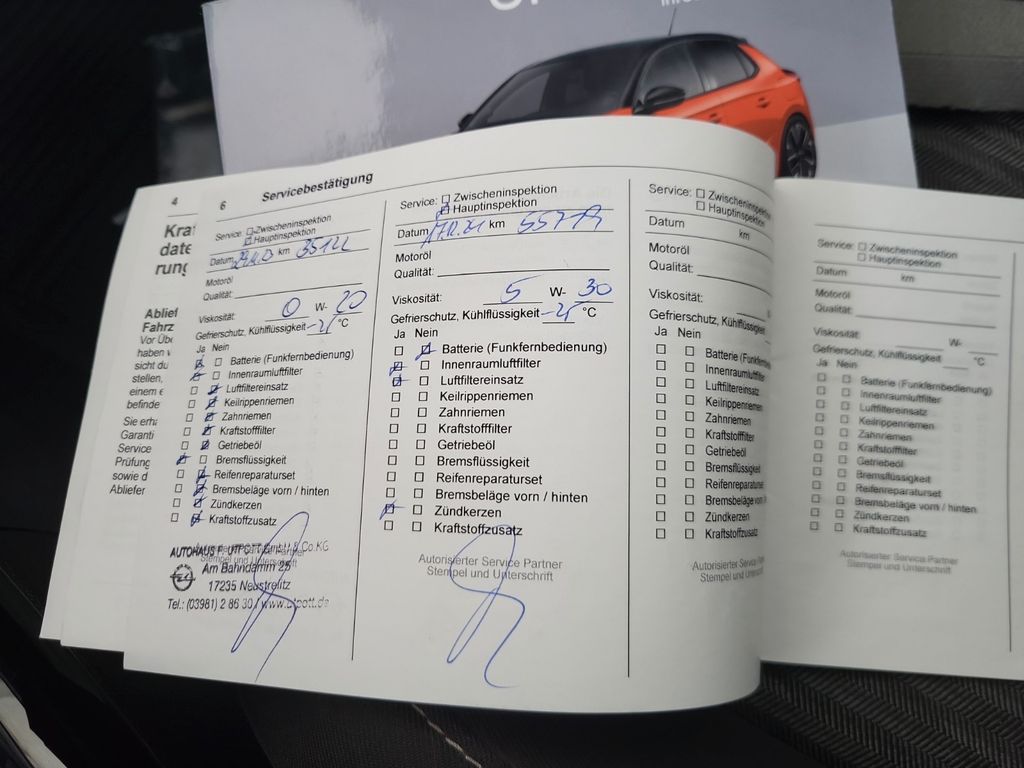 4
Kra
date
rung
Ablief
Fahrz
Vor Übe
haben v
sicht du
stellen,
einem e
befinde
Sie erha
Garanti
Service
Prüfung
sowie d
Abliefer
6
Servicebestätigung
Service: Zwischeninspektion
Hauptinspektion
Datum km
Motoröl
Qualität:
Viskosität: 0 W- 20
Gefrierschutz, Kühlflüssigkeit °C
Ja Nein
Batterie (Funkfernbedienung)
Innenraumluftfilter
Luftfiltereinsatz
Keilrippenriemen
Zahnriemen
Kraftstofffilter
Getriebeöl
Bremsflüssigkeit
Reifenreparaturset
Bremsbeläge vorn / hinten
Zündkerzen
Kraftstoffzusatz
Stempel und Unterschrift
AUTOHAUS F. UTPOTT GmbH & Co.KG
Am Bahndamm 25
17235 Neustrelitz
Tel.: (03981) 2 86 30 / www.utpott.de
Service: Zwischeninspektion
Hauptinspektion
Datum km
Motoröl
Qualität:
Viskosität: 5 W- 30
Gefrierschutz, Kühlflüssigkeit °C
Ja Nein
Batterie (Funkfernbedienung)
Innenraumluftfilter
Luftfiltereinsatz
Keilrippenriemen
Zahnriemen
Kraftstofffilter
Getriebeöl
Bremsflüssigkeit
Reifenreparaturset
Bremsbeläge vorn / hinten
Zündkerzen
Kraftstoffzusatz
Autorisierter Service Partner
Stempel und Unterschrift
Service: Zwischeninspektion
Hauptinspektion
Datum km
Motoröl
Qualität:
Viskosität:
Gefrierschutz, Kühlflüssigkeit
Ja Nein
Batterie (Funkfernbedie
Innenraumluftfilter
Luftfiltereinsatz
Keilrippenriemen
Zahnriemen
Kraftstofffilter
Getriebeöl
Bremsflüssigkeit
Reifenreparaturset
Bremsbeläge vorn
Zündkerzen
Kraftstoffzusatz
Autorisierter Service
Stempel und Unter
Service: Zwischeninspektion
Hauptinspektion
Datum km
Motoröl
Qualität:
Viskosität: W-
Gefrierschutz, Kühlflüssigkeit °C
Ja Nein
Batterie (Funkfernbedienung)
Innenraumluftfilter
Luftfiltereinsatz
Keilrippenriemen
Zahnriemen
Kraftstofffilter
Getriebeöl
Bremsflüssigkeit
Reifenreparaturset
Bremsbeläge vorn / hinten
Zündkerzen
Kraftstoffzusatz
Autorisierter Service Partner
Stempel und Unterschrift